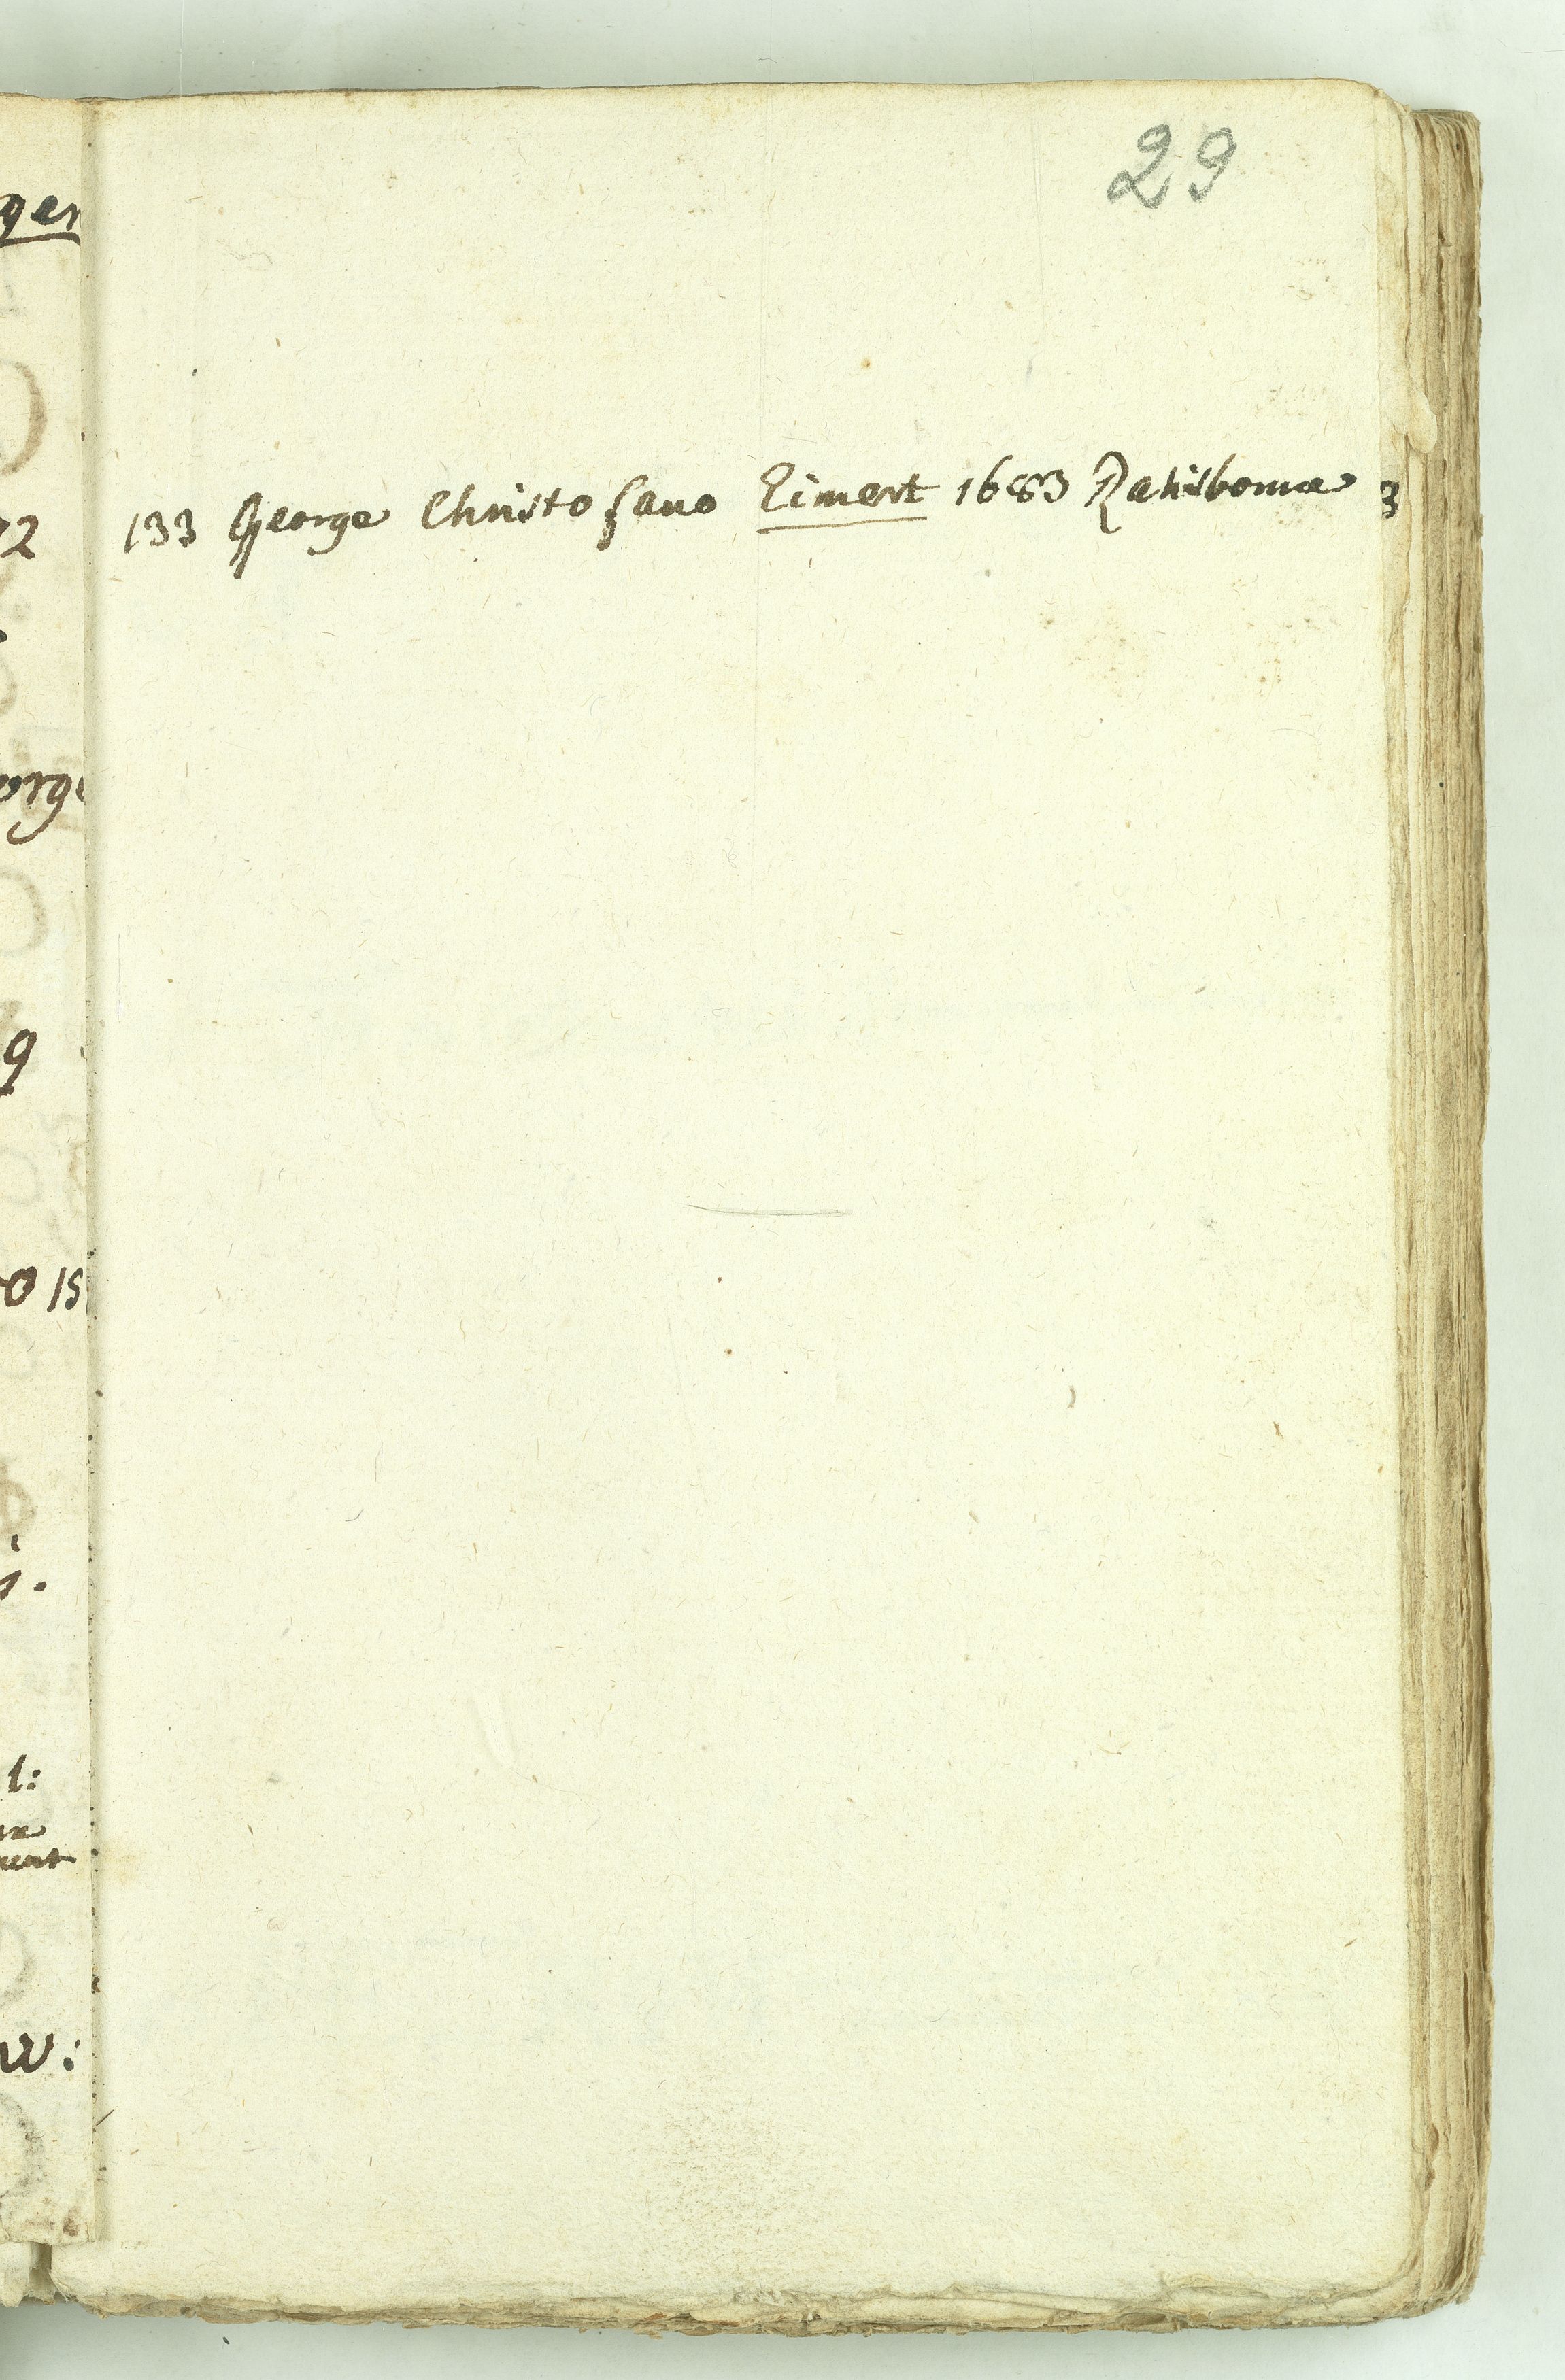 29
133 George Christofano Eimert 1683 Ratisbonæ 3